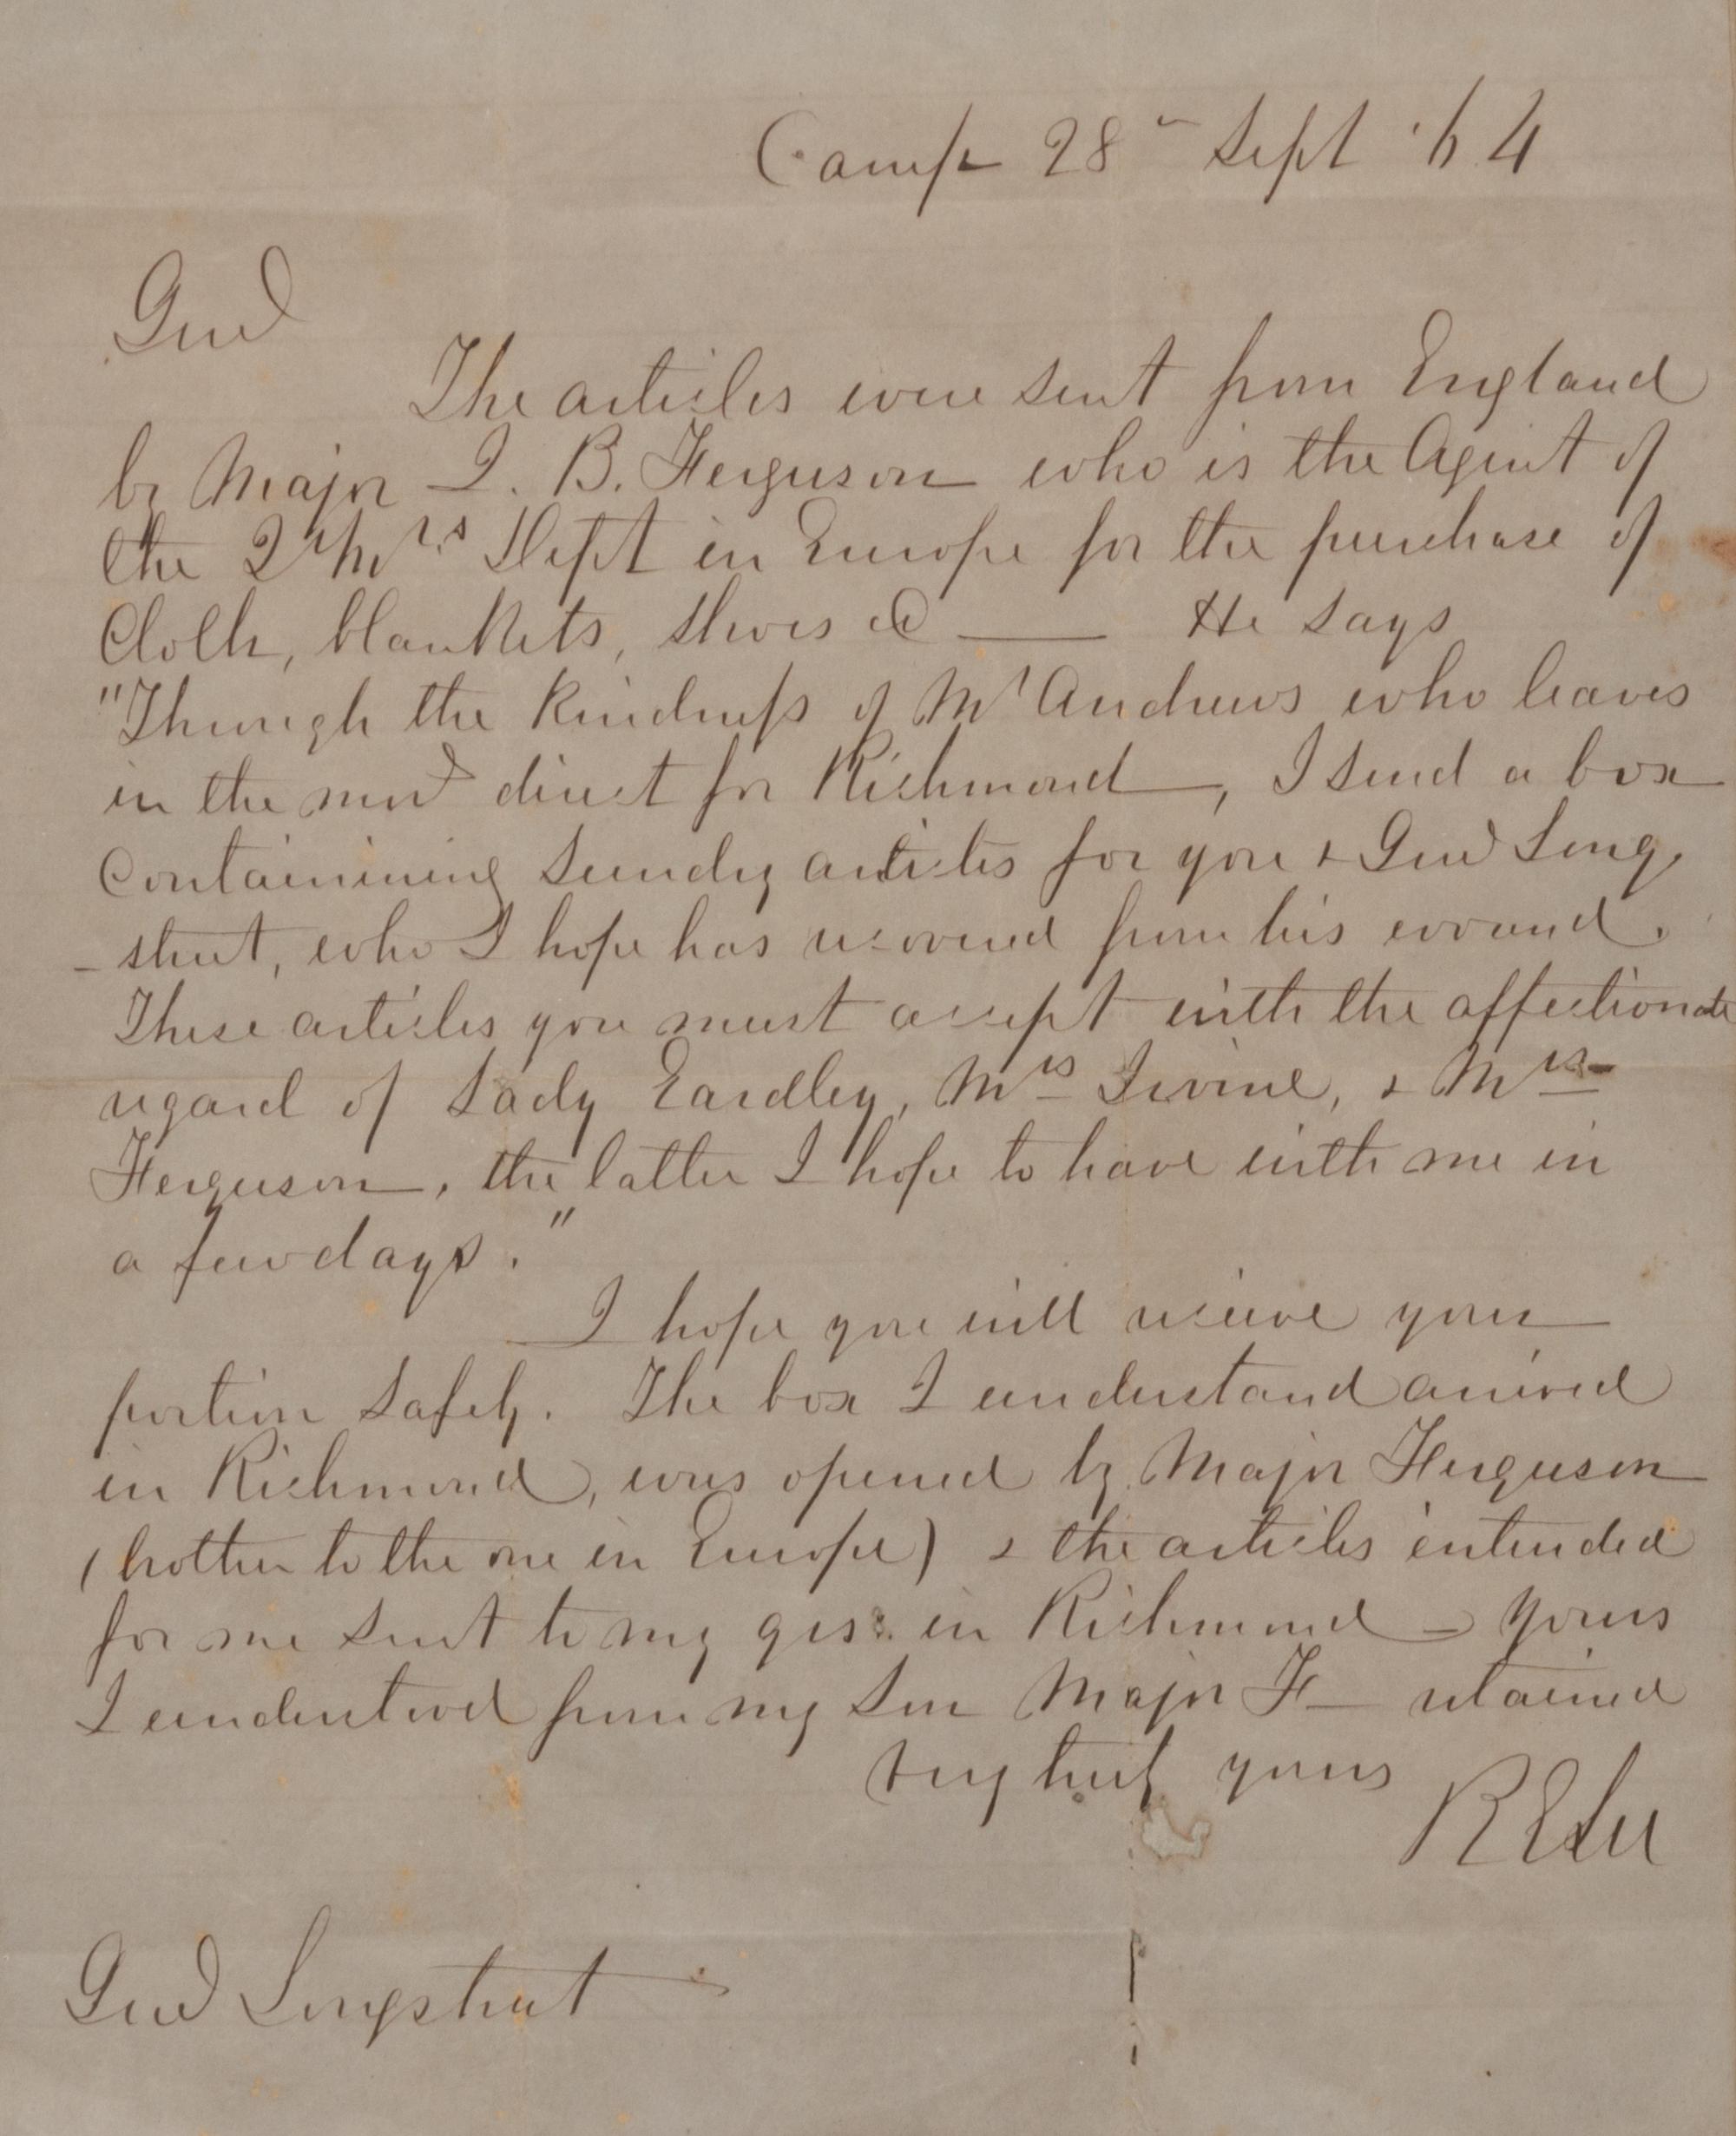 Camp 28 Sept '64
Genl
The articles were sent from England
by Major J. B. Ferguson who is the Agent of
the QrMrs Dept in Europe for the purchase of
Cloth, blankets, shoes &c — He says
"Through the kindness of Mr Andrews who leaves
in the mornd direct for Richmond, I send a box
containining sundry articles for you & Genl Long
-street, who I hope has recovered from his wound.
These articles you must accept with the affectionate
regard of Lady Eardley, Mrs Irvine, & Mrs
Ferguson, the latter I hope to have with me in
a few days."
I hope you will receive your
portion safely. The box I understand arrived
in Richmond, was opened by Major Ferguson
(brother to the one in Europe) & the articles intended
for me sent to my qrs: in Richmond - Yours
I understood from my son Major F— retained
Very truly yours
RELee
Genl Longstreet